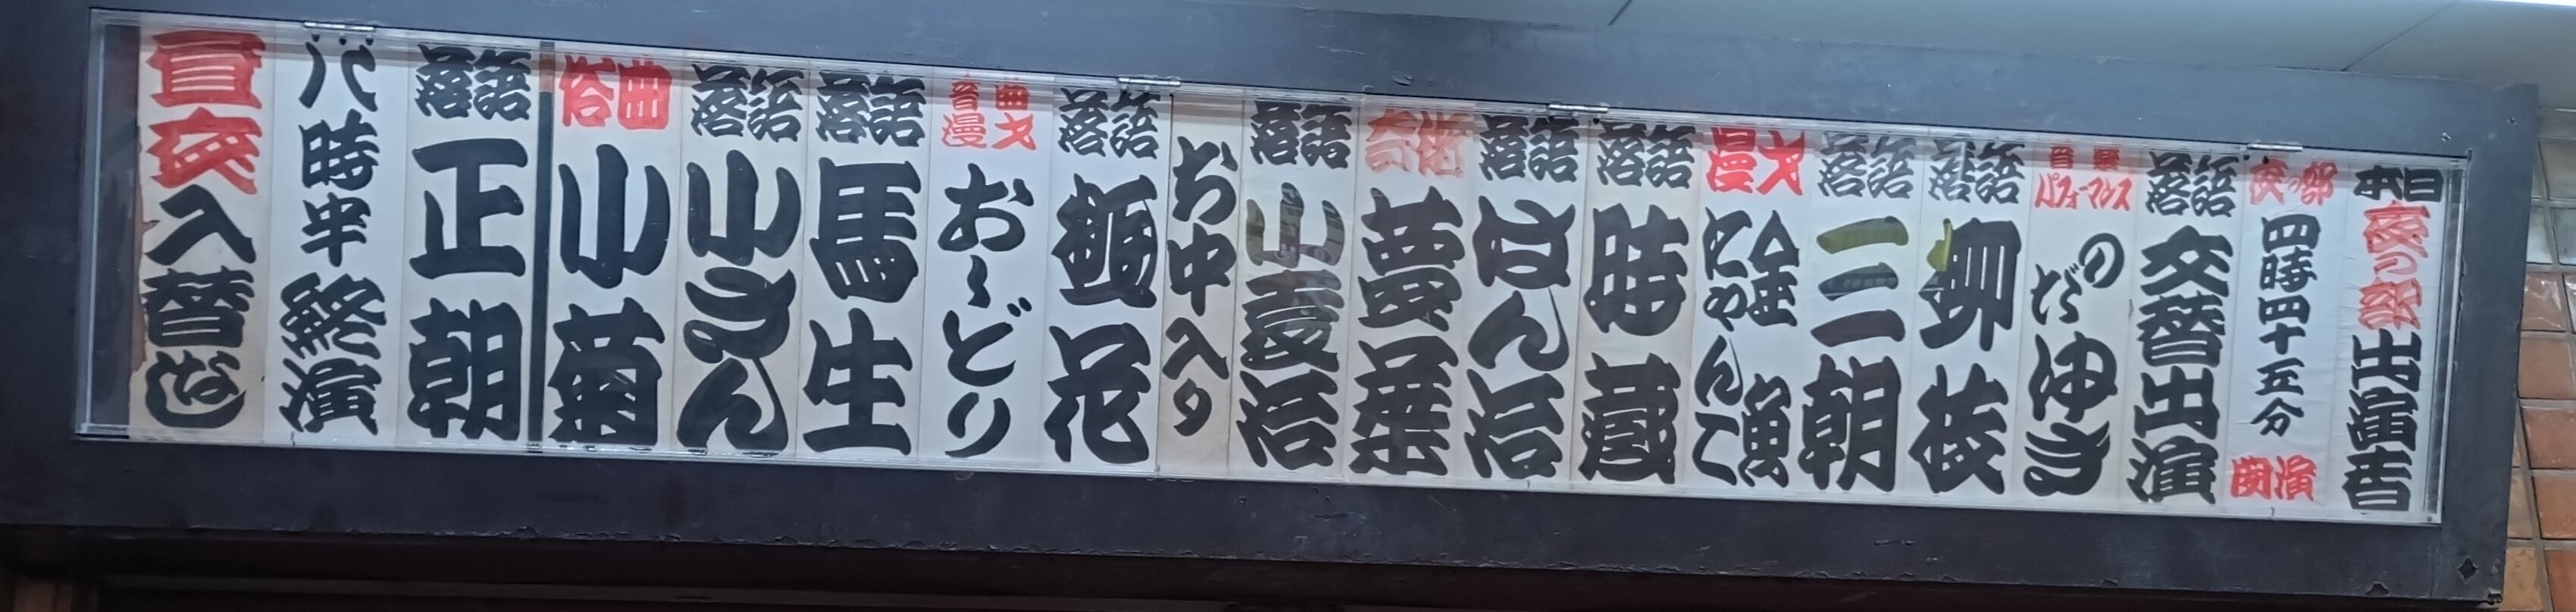 本日夜の部出演者
夜の部 四時四十五分 開演
落語 交替出演
音楽パフォーマンス のだゆき
落語 柳枝
落語 三朝
漫才 にゃんこ 金魚
落語 時蔵
落語 はん治
奇術 夢葉
落語 小袁治
お中入り
落語
音曲漫才 おしどり
落語 馬生
落語 小さん
俗曲 小菊
落語 正朝
八時半終演
昼夜入替なし